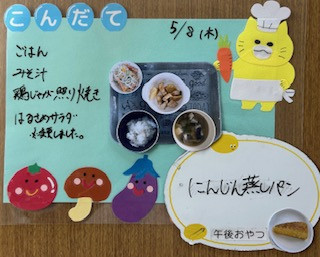 こんだて
5/8(木)
ごはん
みそ汁
鶏じゃが照り焼き
はるさめサラダ
変更しました。
にんじん蒸しパン
午後おやつ